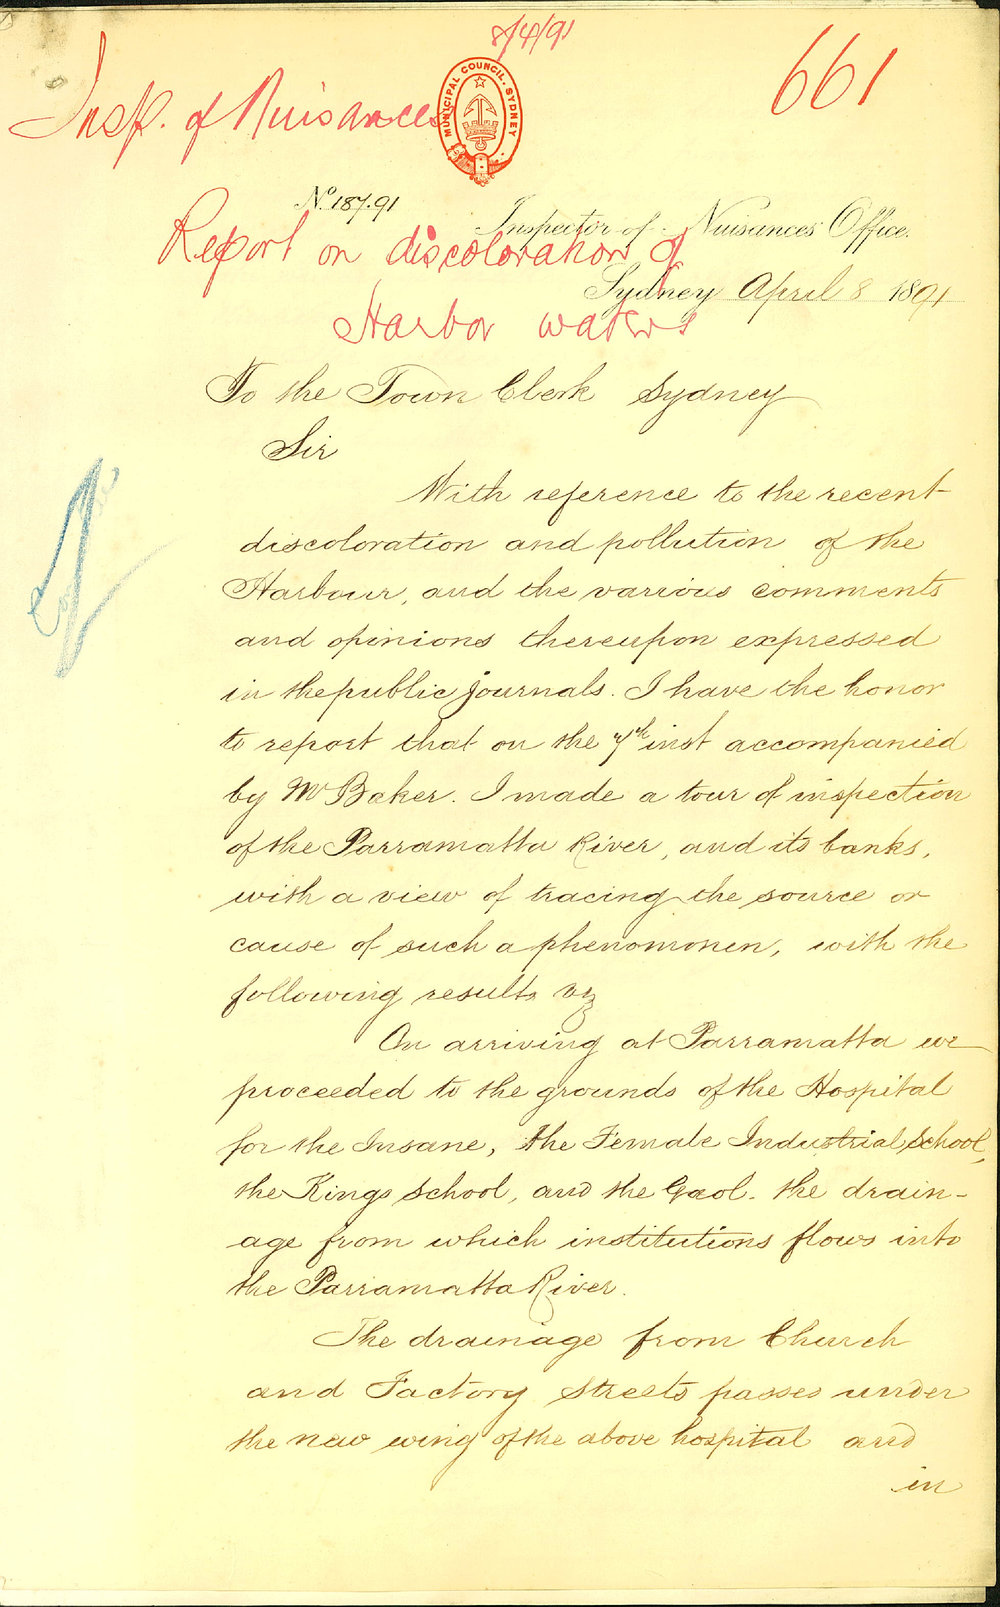 8/4/91
661
Insp. of Nuisances
MUNICIPAL COUNCIL. SYDNEY
No. 187.91
Inspector of Nuisances Office.
Report on discoloration of
Sydney April 8 1891
Harbor waters
To the Town Clerk Sydney
Sir
With reference to the recent
discoloration and pollution of the
Harbour, and the various comments
and opinions thereupon expressed
in the public journals. I have the honor
to report that on the 7th inst accompanied
by Mr Baker. I made a tour of inspection
of the Parramatta River, and its banks,
with a view of tracing the source or
cause of such a phenomonen, with the
following results viz
On arriving at Parramatta we
proceeded to the grounds of the Hospital
for the Insane, the Female Industrial School,
the Kings School, and the Gaol. the drain-
age from which institutions flows into
the Parramatta River.
The drainage from Church
and Factory Streets passes under
the new wing of the above hospital and
in